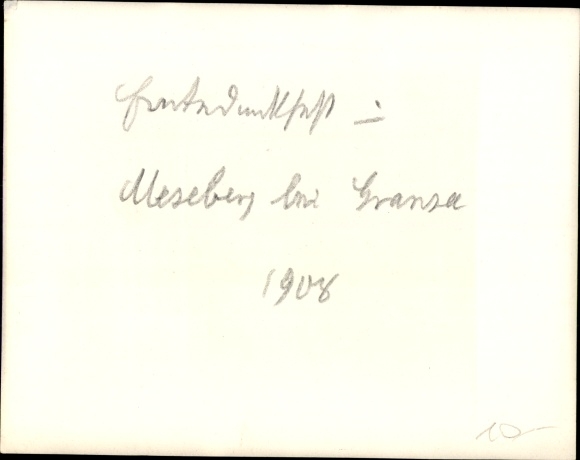 Erntedankfest i
Meseberg bei Gransee
1908
10-